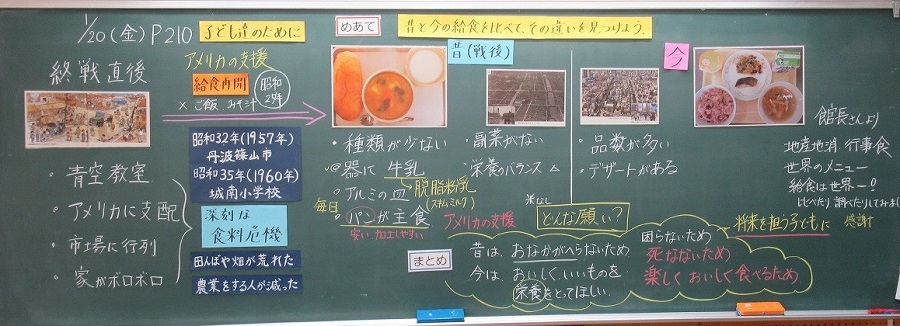 1/20(金)P210
子ども達のために
めあて
昔と今の給食を比べて、その違いを見つけよう。
終戦直後
・青空教室
・アメリカに支配
・市場に行列
・家がボロボロ
アメリカの支援
給食再開
昭和
× ご飯 みそ汁
昭和32年(1957年)
丹波篠山市
昭和35年(1960年)
城南小学校
深刻な
食料危機
田んぼや畑が荒れた
農業をする人が減った
昔(戦後)
・種類が少ない
・器に牛乳
脱脂粉乳
(スキムミルク)
・アルミの皿
毎日
・パンが主食
安い 加工しやすい
・副菜がない
・栄養のバランス△
米なし
アメリカの支援
どんな願い?
今
・品数が多い
・デザートがある
館長さんより
地産地消 行事食
世界のメニュー
給食は世界一!
比べたり調べたりしてみま
感謝
将来を担う子どもに
まとめ
昔は、おなかがへらないため
困らないため
死なないため
今は、おいしく、いいものを
栄養をとってほしい。
楽しくおいしく食べるため